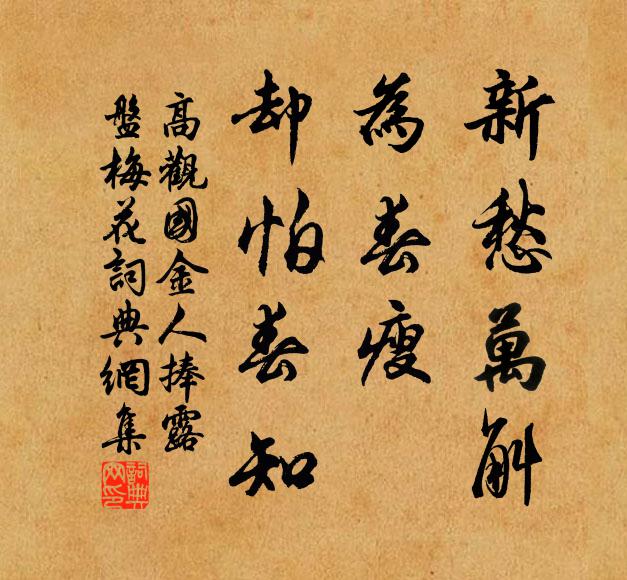 新愁萬斛
為春瘦
却怕春知
高觀國金人捧露
盤梅花詞典網集
詞典網印